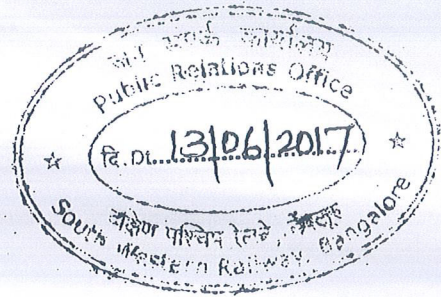 जन संपर्क कार्यालय
Public Relations Office
दि. Dt...13/06/2017
दक्षिण पश्चिम रेलवे, बेंगलूरु
South Western Railway, Bangalore